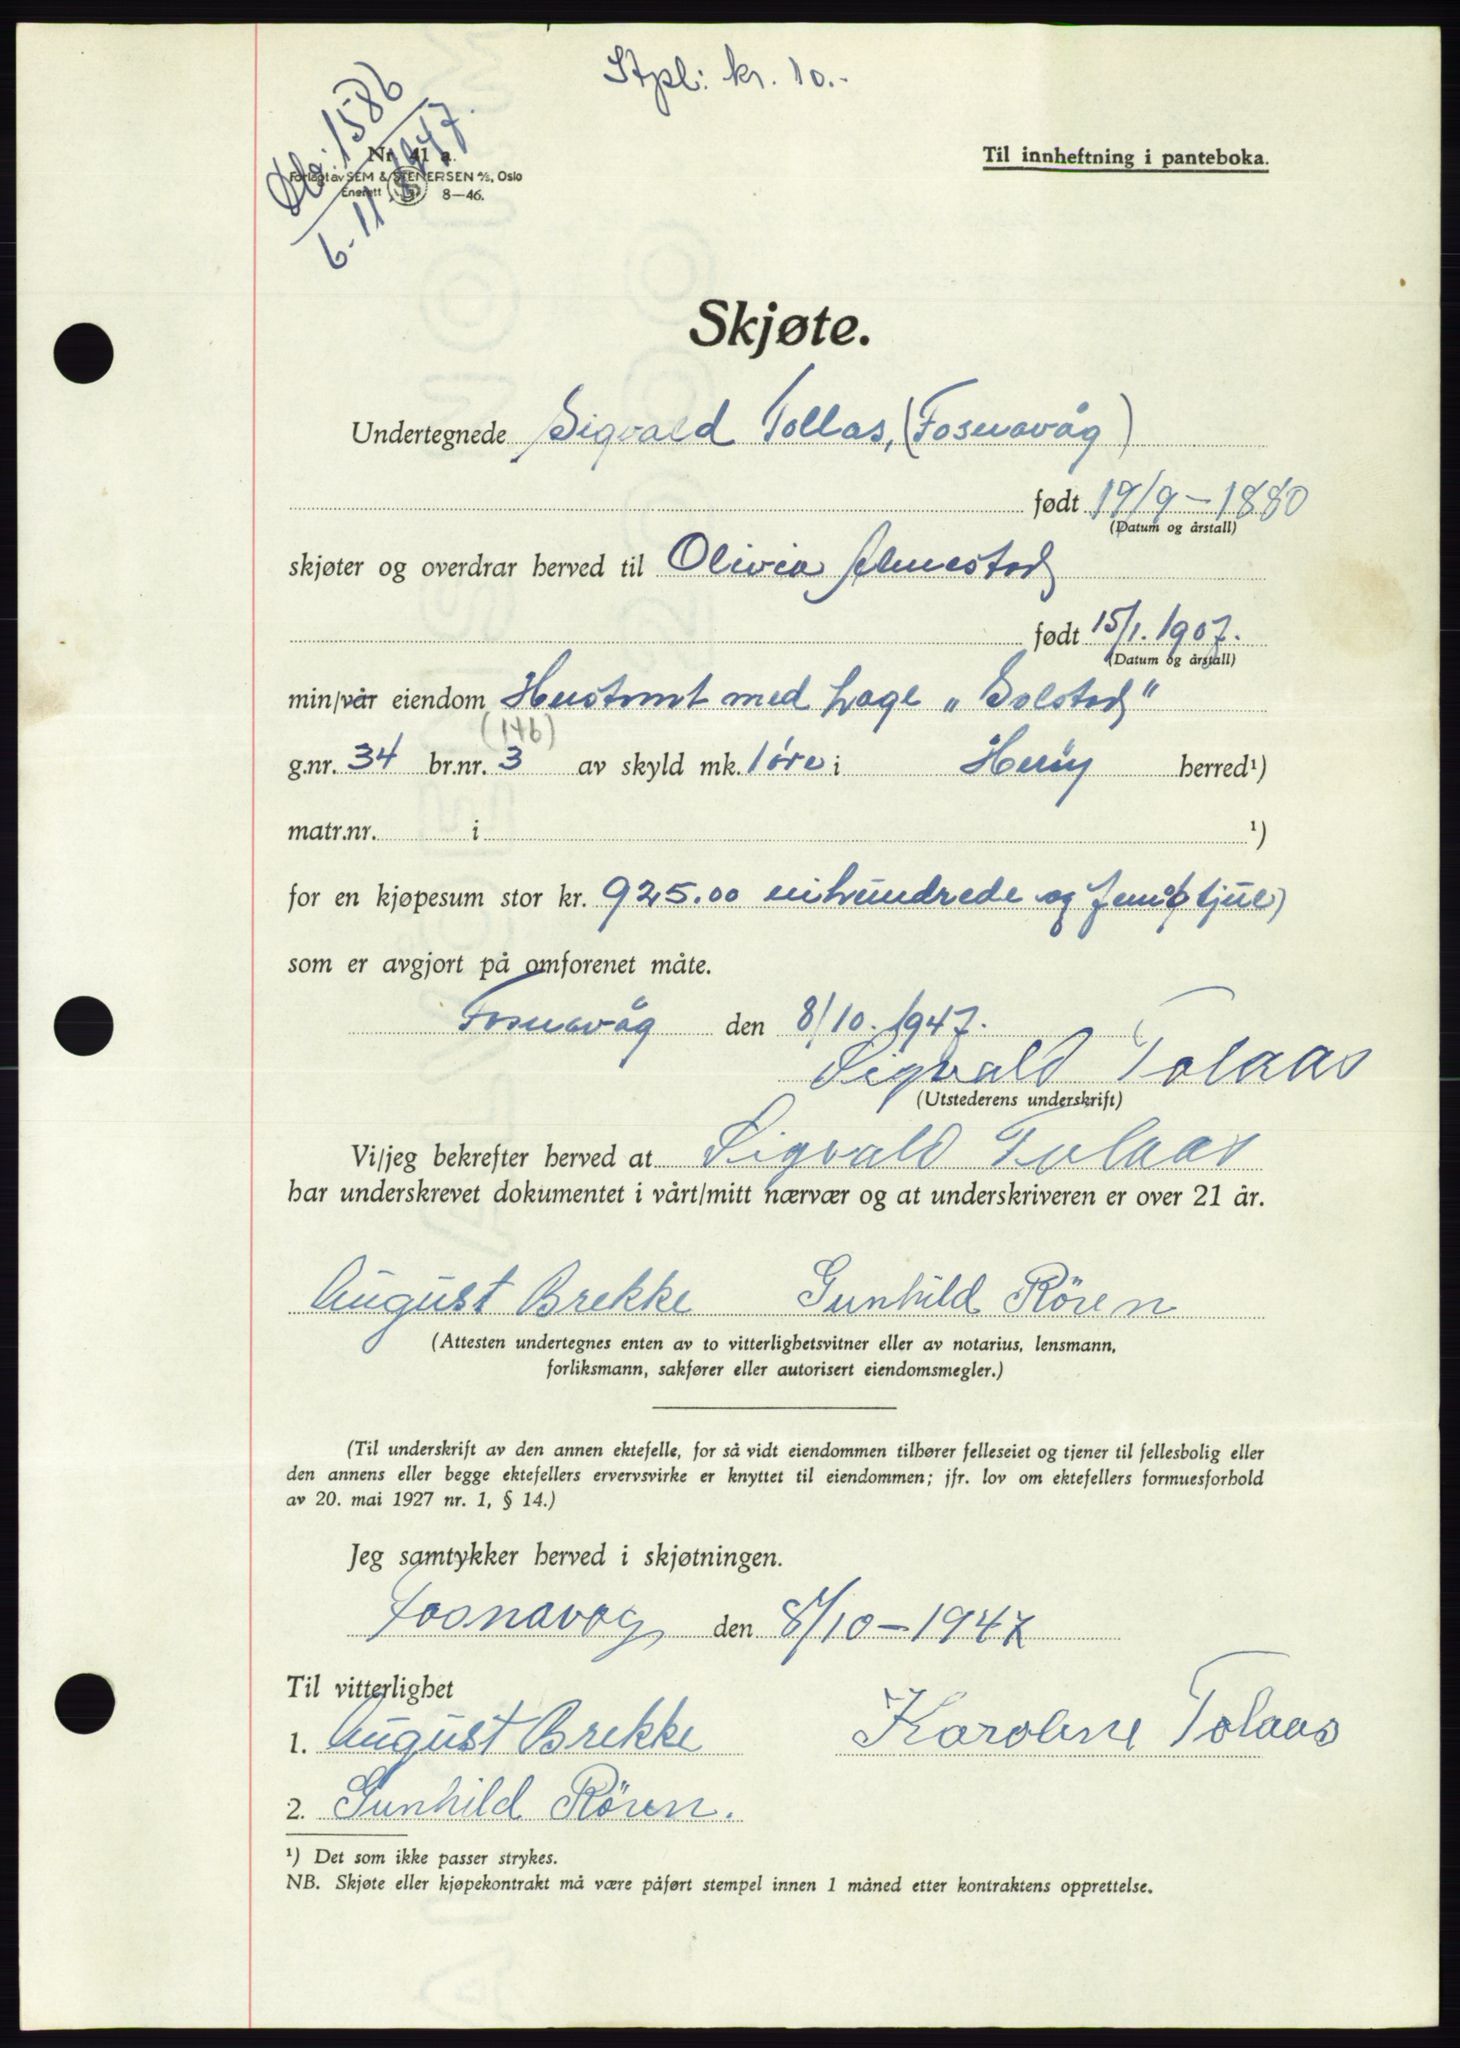 Stpl: kr. 10.-
Dbr: 1586
6-11-1947.
Nr. 41 a.
Forlagt av SEM & STENERSEN A/S, Oslo
Enerett 8—46.
Til innheftning i panteboka.
Skjøte.
Undertegnede Sigvald Tollas, (Fosnavåg)
født 19/9-1880
(Datum og årstall)
skjøter og overdrar herved til Olivia Almestad
født 15/1.1907.
(Datum og årstall)
min/vår eiendom Hustomt med hage "Solstad"
(146)
g.nr. 34 br.nr. 3 av skyld mk. 1 øre i Herøy herred¹)
matr.nr. i ¹)
for en kjøpesum stor kr. 925.00 nihundrede og fem og tjue)
som er avgjort på omforenet måte.
Fosnavåg den 8/10.1947.
Sigvald Tolaas
(Utstederens underskrift)
Vi/jeg bekrefter herved at Sigvald Tolaas
har underskrevet dokumentet i vårt/mitt nærvær og at underskriveren er over 21 år.
August Brekke Gunhild Rören
(Attesten undertegnes enten av to vitterlighetsvitner eller av notarius, lensmann,
forliksmann, sakfører eller autorisert eiendomsmegler.)
(Til underskrift av den annen ektefelle, for så vidt eiendommen tilhører felleseiet og tjener til fellesbolig eller
den annens eller begge ektefellers ervervsvirke er knyttet til eiendommen; jfr. lov om ektefellers formuesforhold
av 20. mai 1927 nr. 1, § 14.)
Jeg samtykker herved i skjøtningen.
Fosnavåg den 8/10-1947
Til vitterlighet
1. August Brekke Karoline Tolaas
2. Gunhild Rören.
¹) Det som ikke passer strykes.
NB. Skjøte eller kjøpekontrakt må være påført stempel innen 1 måned etter kontraktens opprettelse.